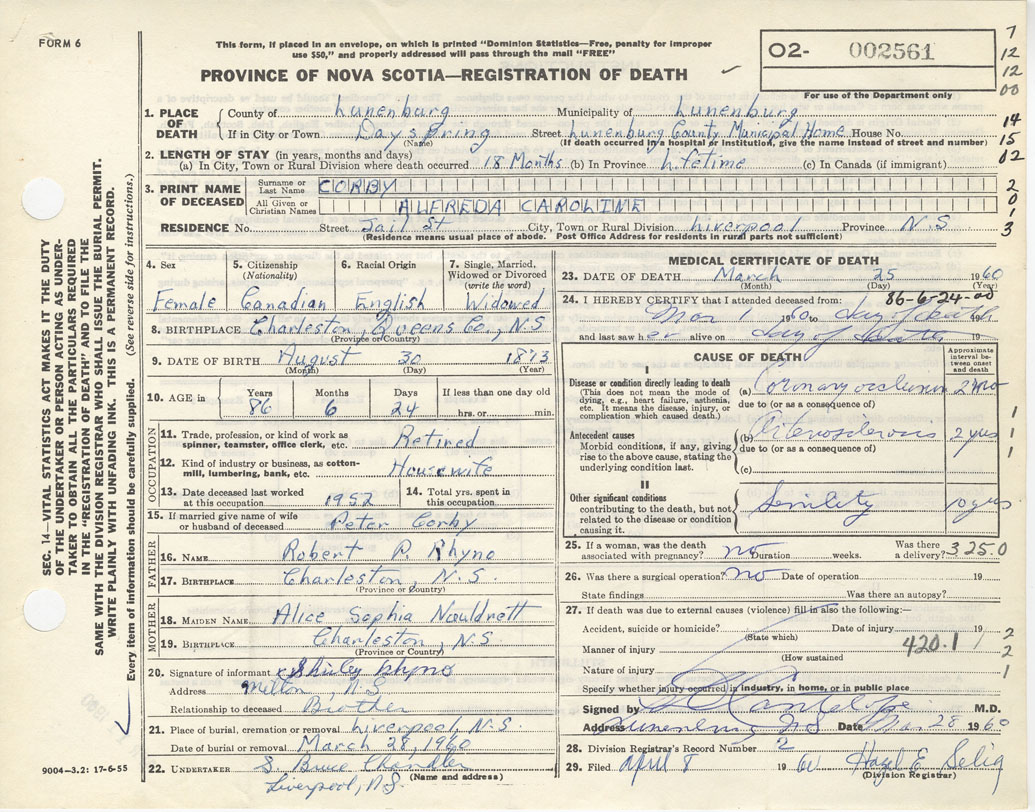 FORM 6
This form, if placed in an envelope, on which is printed "Dominion Statistics—Free, penalty for improper
use $50," and properly addressed will pass through the mail "FREE"
PROVINCE OF NOVA SCOTIA—REGISTRATION OF DEATH
02- 002561
For use of the Department only
7
12
12
00
14
15
02
2
0
1
3
1. PLACE OF DEATH
County of Lunenburg Municipality of Lunenburg
If in City or Town Dayspring Street Lunenburg County Municipal Home House No.
(Name) (If death occurred in a hospital or institution, give the name instead of street and number)
2. LENGTH OF STAY (in years, months and days)
(a) In City, Town or Rural Division where death occurred 18 Months (b) In Province Lifetime (c) In Canada (if immigrant)
3. PRINT NAME OF DECEASED
Surname or Last Name CORBY
All Given or Christian Names ALFREDA CAROLINE
RESIDENCE No. Street Jail St City, Town or Rural Division Liverpool Province N.S
(Residence means usual place of abode. Post Office Address for residents in rural parts not sufficient)
4. Sex Female
5. Citizenship (Nationality) Canadian
6. Racial Origin English
7. Single, Married, Widowed or Divorced (write the word) Widowed
8. BIRTHPLACE Charleston, Queens Co., N.S
(Province or Country)
9. DATE OF BIRTH August 30 1873
(Month) (Day) (Year)
10. AGE in Years 86 Months 6 Days 24 If less than one day old hrs. or min.
OCCUPATION
11. Trade, profession, or kind of work as spinner, teamster, office clerk, etc. Retired
12. Kind of industry or business, as cotton-mill, lumbering, bank, etc. Housewife
13. Date deceased last worked at this occupation 1952
14. Total yrs. spent in this occupation
15. If married give name of wife or husband of deceased Peter Corby
FATHER
16. NAME Robert P. Rhyno
17. BIRTHPLACE Charleston, N.S.
(Province or Country)
MOTHER
18. MAIDEN NAME Alice Sophia
19. BIRTHPLACE Charleston, N.S
(Province or Country)
20. Signature of informant x Rhyno
Address Milton, N.S.
Relationship to deceased Brother
21. Place of burial, cremation or removal Liverpool, N.S.
Date of burial or removal March 28, 1960
22. UNDERTAKER S. Bruce Chandler
(Name and address)
Liverpool, N.S.
9004—3.2: 17-6-55
MEDICAL CERTIFICATE OF DEATH
23. DATE OF DEATH March 25 1960
(Month) (Day) (Year)
24. I HEREBY CERTIFY that I attended deceased from: 86-6-24-00
Mar 1 1960 to day of death 19
and last saw her alive on day of death 19
CAUSE OF DEATH
Approximate interval between onset and death
I
Disease or condition directly leading to death
(This does not mean the mode of dying, e.g., heart failure, asthenia, etc. It means the disease, injury, or complication which caused death.)
(a) Coronary occlusion 2 mo
due to (or as a consequence of)
Antecedent causes
Morbid conditions, if any, giving rise to the above cause, stating the underlying condition last.
(b) Arteriosclerosis 2 yrs
due to (or as a consequence of)
(c)
1
1
1
II
Other significant conditions
contributing to the death, but not related to the disease or condition causing it.
Senility 10 yrs
25. If a woman, was the death associated with pregnancy? no Duration weeks. Was there a delivery? 3250
26. Was there a surgical operation? no Date of operation 19
State findings Was there an autopsy?
27. If death was due to external causes (violence) fill in also the following:—
Accident, suicide or homicide? Date of injury 19
(State which)
Manner of injury 420.1
(How sustained
Nature of injury
2
2
1
Specify whether injury occurred in industry, in home, or in public place
Signed by M.D.
Address Lunenburg NS Date Mar 28 1960
28. Division Registrar's Record Number 2
29. Filed April 8 1960 Hazel E. Selig
(Division Registrar)
SEC. 14—VITAL STATISTICS ACT MAKES IT THE DUTY
OF THE UNDERTAKER OR PERSON ACTING AS UNDER-
TAKER TO OBTAIN ALL THE PARTICULARS REQUIRED
IN THE "REGISTRATION OF DEATH" AND TO FILE THE
SAME WITH THE DIVISION REGISTRAR WHO SHALL ISSUE THE BURIAL PERMIT.
WRITE PLAINLY WITH UNFADING INK. THIS IS A PERMANENT RECORD.
Every item of information should be carefully supplied. (See reverse side for instructions.)